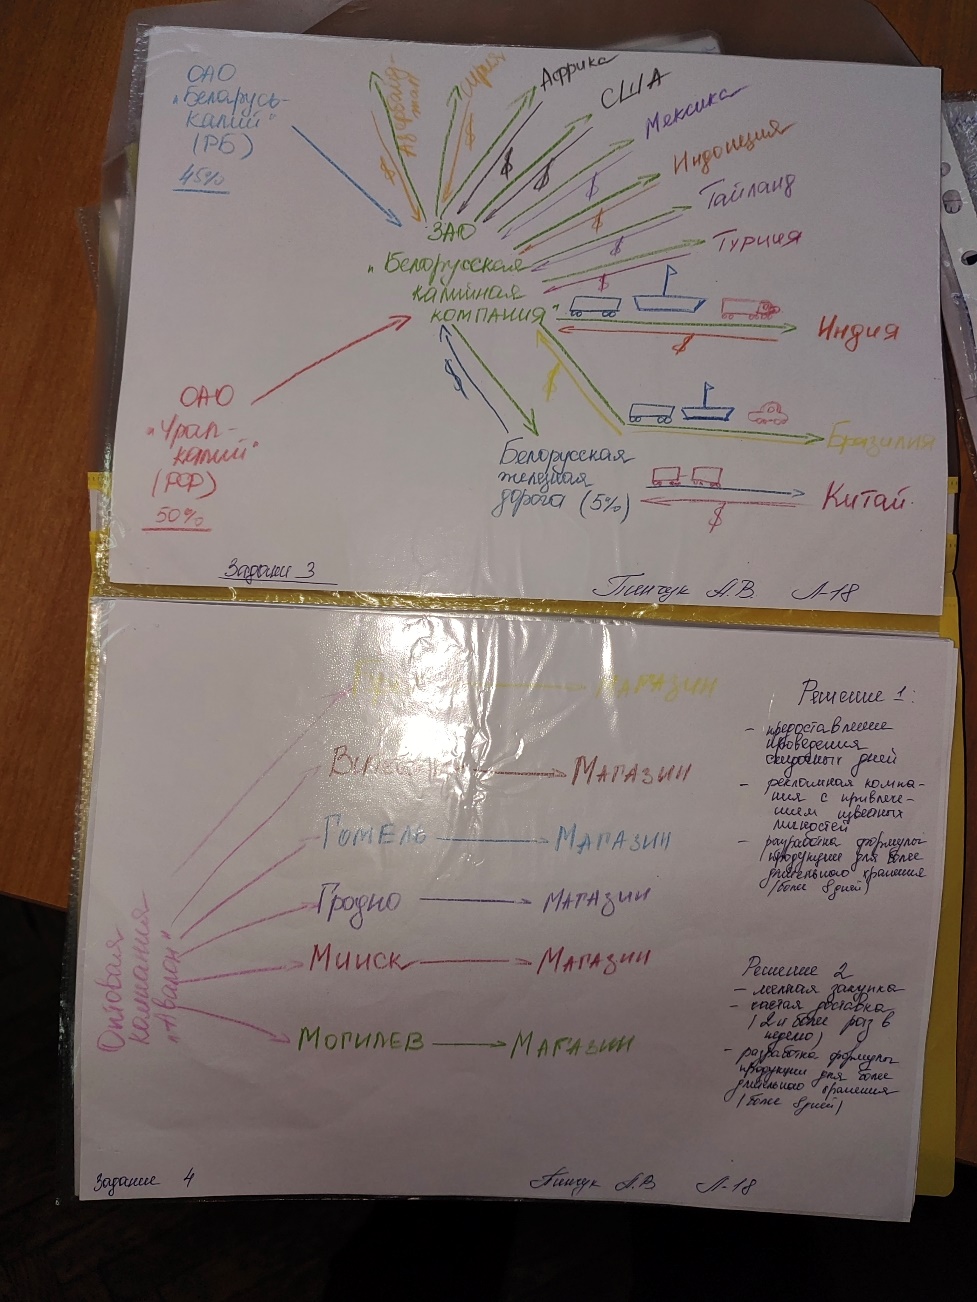 ОАО
„Беларусь-
калий"
(РБ)
45%
Азербайд-
жан
$
Сирия
$
Африка
$
США
$
Мексика
$
Индонезия
$
Тайланд
$
Турция
$
ЗАО
„Белорусская
калийная
компания"
Индия
$
ОАО
„Урал-
калий"
(РФ)
50%
$
$
Бразилия
Белорусская
железная
дорога (5%)
Китай
$
Задание 3
Пинчук А.В. Л-18
Магазин
Магазин
Гомель
Магазин
Гродно
Магазин
Минск
Магазин
Могилев
Магазин
Оптовая
компания
„Авалон"
Решение 1:
- предоставление
проведения
скидочных дней
- рекламная компа-
ния с привлече-
нием известных
личностей
- разработка формулы
продукции для более
длительного хранения
(более 8 дней)
Решение 2
- мелкая закупка
- частая доставка
(2 и более раз в
неделю)
- разработка формулы
продукции для более
длительного хранения
(более 8 дней)
Задание 4
Пинчук А.В Л-18